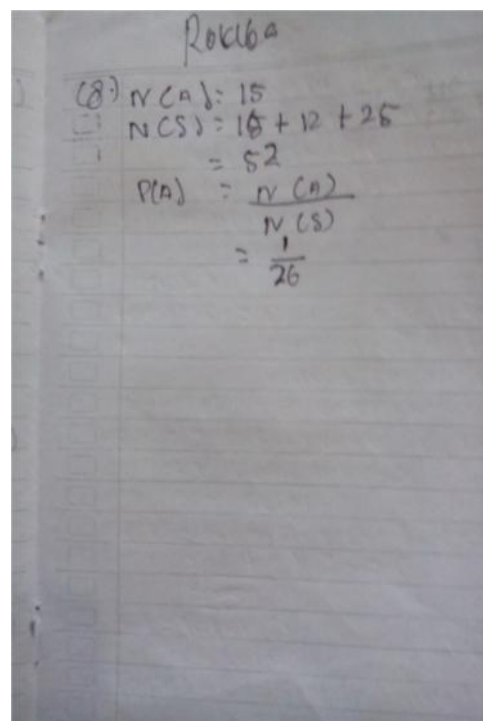 Rokiba
(8.) N(A) = 15
N(S) = 15 + 12 + 25
= 52
P(A) = N(A)
N(S)
= 1
26